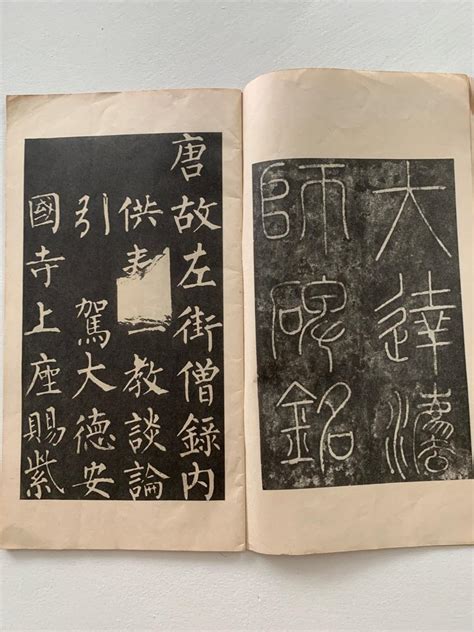 大達灋
師碑銘
唐故左街僧錄內
供教談論
引駕大德安
國寺上座賜紫